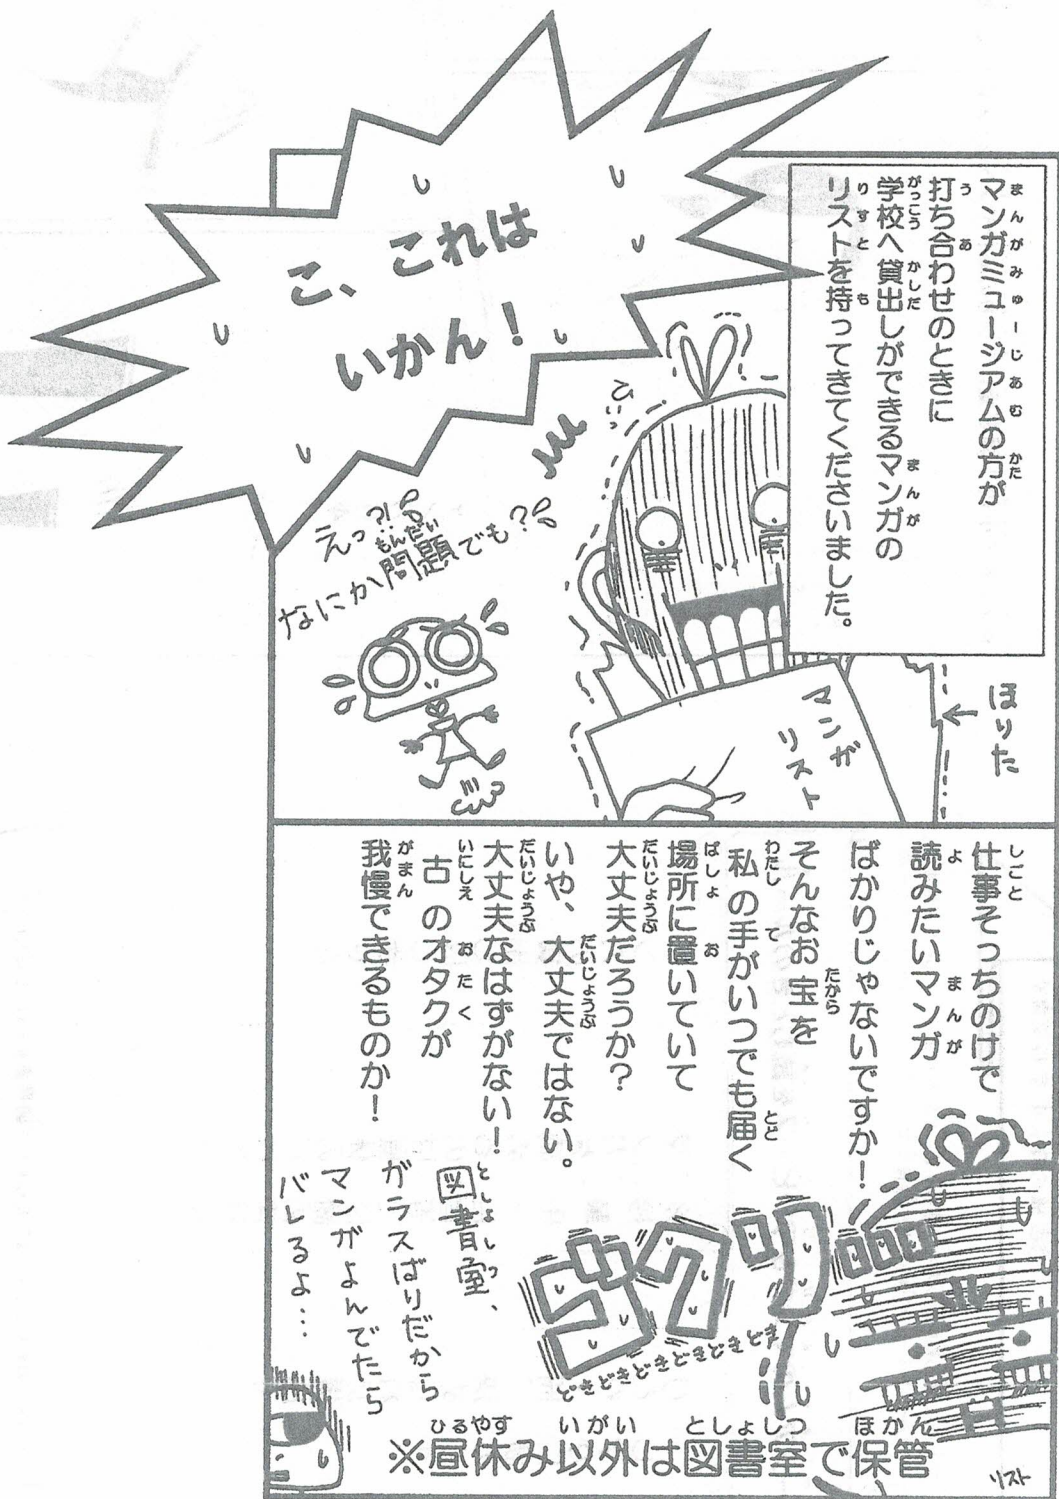 マンガミュージアムの方が
打ち合わせのときに
学校へ貸出しができるマンガの
リストを持ってきてくださいました。
こ、これは
いかん!
ひぃっ
えっ?!
なにか問題でも??
ほりた
マンガ
リスト
仕事そっちのけで
読みたいマンガ
ばかりじゃないですか!
そんなお宝を
私の手がいつでも届く
場所に置いていて
大丈夫だろうか?
いや、大丈夫ではない。
大丈夫なはずがない!
古のオタクが
我慢できるものか!
ゴクリ
どきどきどきどきどきどき
図書室、
ガラスばりだから
マンガよんでたら
バレるよ…
※昼休み以外は図書室で保管
リスト